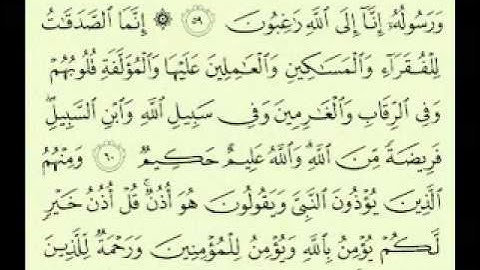 وَرَسُولُهُۥٓ إِنَّآ إِلَى ٱللَّهِ رَٰغِبُونَ ٥٩ ۞ إِنَّمَا ٱلصَّدَقَٰتُ
لِلْفُقَرَآءِ وَٱلْمَسَٰكِينِ وَٱلْعَٰمِلِينَ عَلَيْهَا وَٱلْمُؤَلَّفَةِ قُلُوبُهُمْ
وَفِى ٱلرِّقَابِ وَٱلْغَٰرِمِينَ وَفِى سَبِيلِ ٱللَّهِ وَٱبْنِ ٱلسَّبِيلِۖ
فَرِيضَةً مِّنَ ٱللَّهِۗ وَٱللَّهُ عَلِيمٌ حَكِيمٌ ٦٠ وَمِنْهُمُ
ٱلَّذِينَ يُؤْذُونَ ٱلنَّبِىَّ وَيَقُولُونَ هُوَ أُذُنٌۚ قُلْ أُذُنُ خَيْرٍ
لَّكُمْ يُؤْمِنُ بِٱللَّهِ وَيُؤْمِنُ لِلْمُؤْمِنِينَ وَرَحْمَةٌ لِّلَّذِينَ